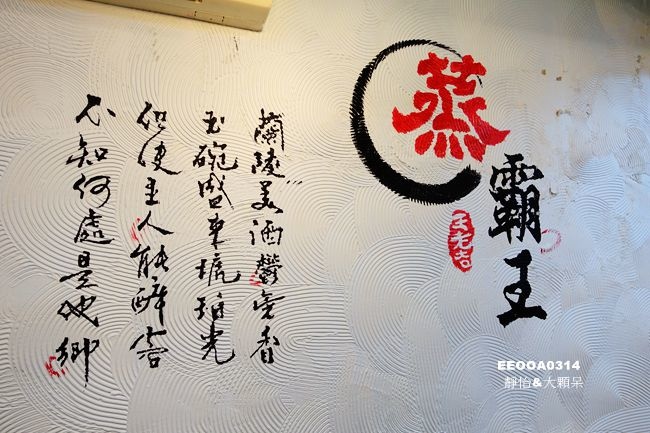 蒸
霸王
王老吉
蘭陵美酒鬱金香
玉碗盛來琥珀光
但使主人能醉客
不知何處是他鄉
EEOOA0314
靜怡&大顆呆